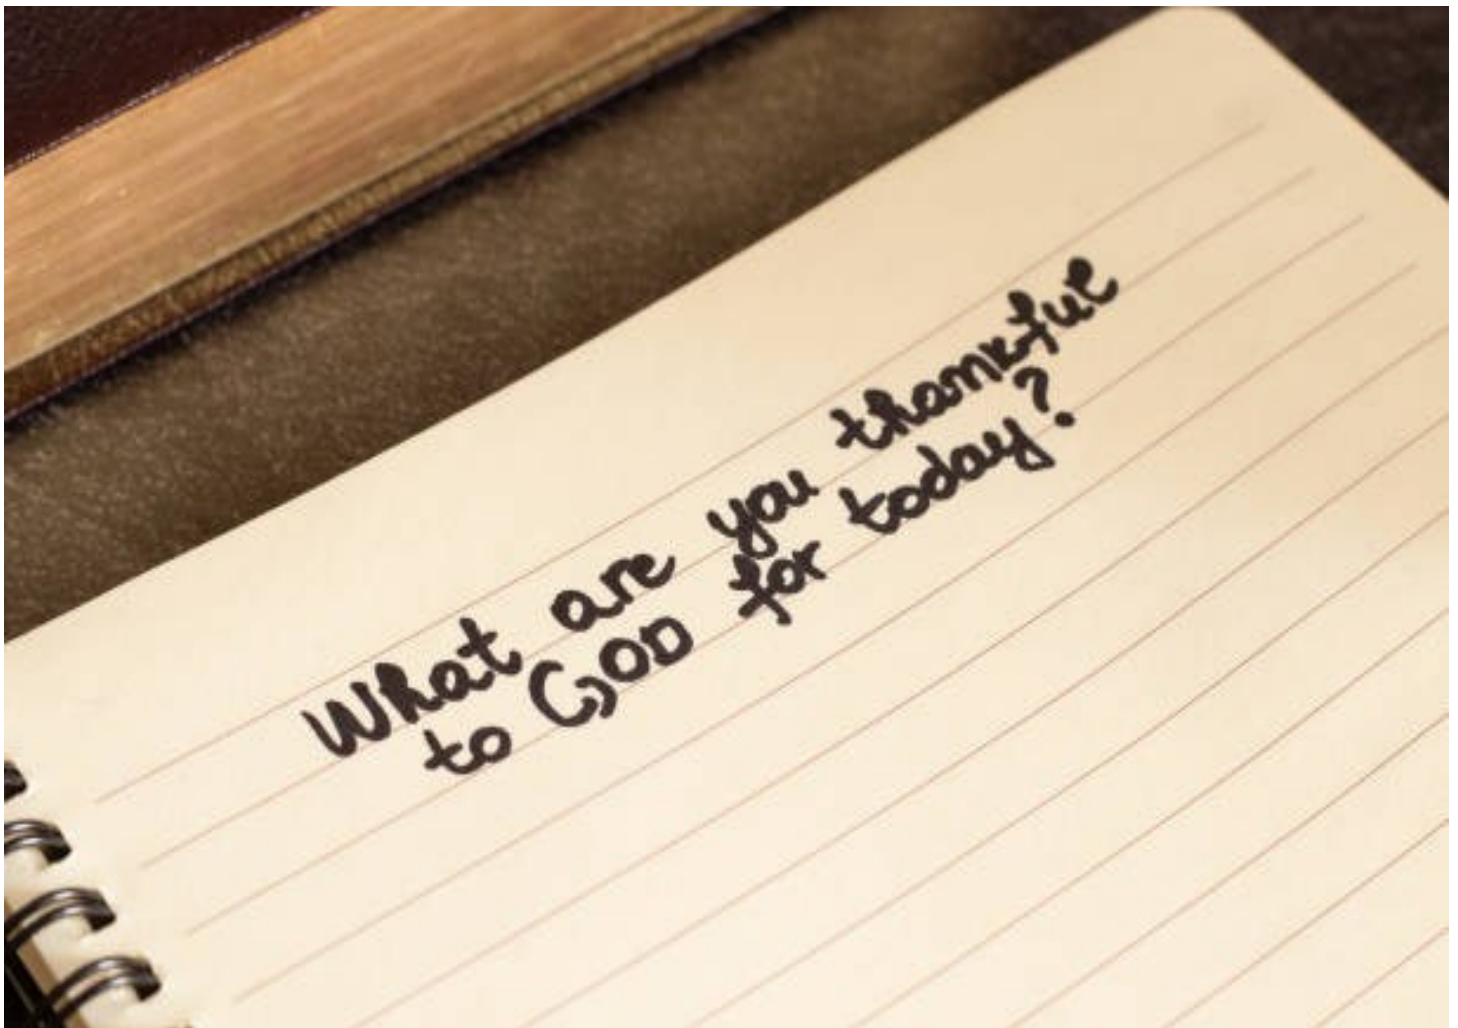 What are you thankful
to GOD for today?